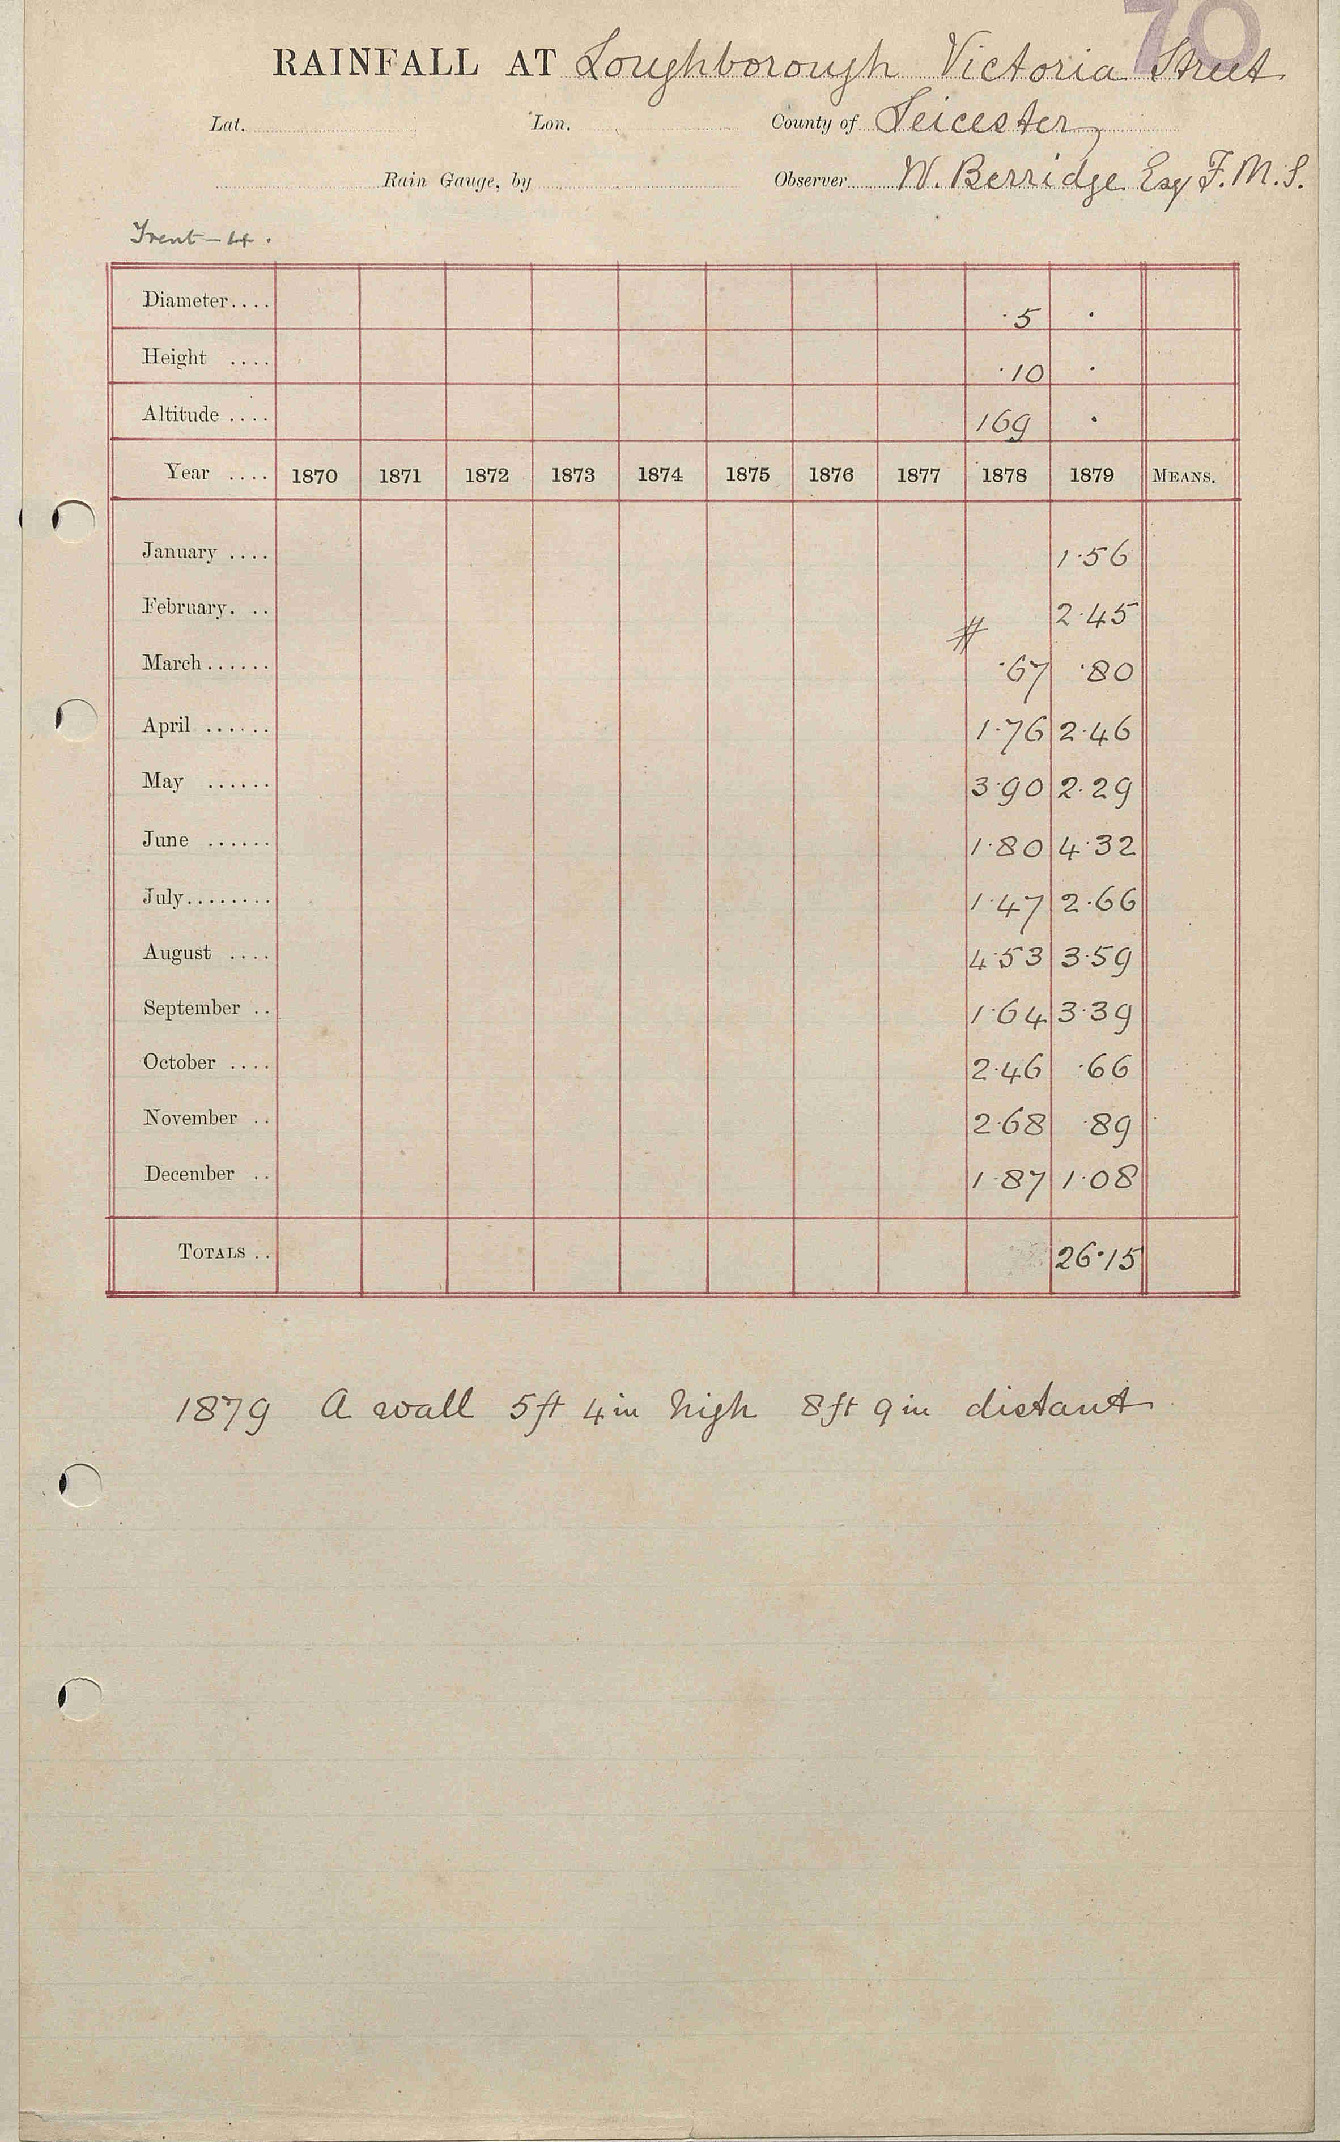 70
RAINFALL AT Loughborough Victoria Street
Lat. Lon. County of Leicester
Rain Gauge, by Observer W. Berridge Esq F.M.S.
Trent - 4.
Diameter.... ·5 ·
Height .... ·10 ·
Altitude .... 169 ·
Year .... 1870 1871 1872 1873 1874 1875 1876 1877 1878 1879 MEANS.
January .... 1·56
February. .. 2·45
#
March...... ·67 ·80
April ...... 1·76 2·46
May ...... 3·90 2·29
June ...... 1·80 4·32
July........ 1·47 2·66
August .... 4·53 3·59
September .. 1·64 3·39
October .... 2·46 ·66
November .. 2·68 ·89
December .. 1·87 1·08
TOTALS .. 26·15
1879 A wall 5ft 4in high 8ft 9in distant